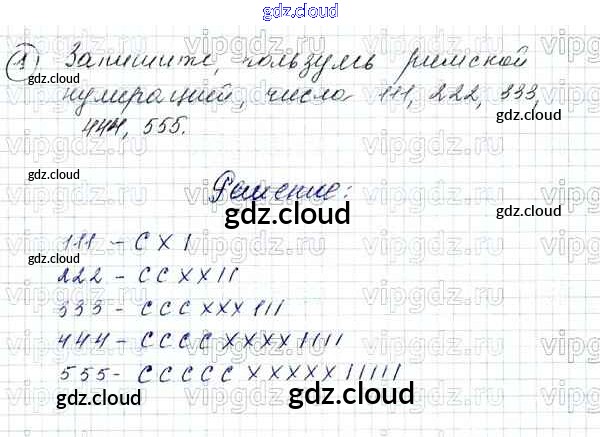 gdz.cloud
① Запишите, пользуясь римской
нумерацией, числа 111, 222, 333,
444, 555.
Решение:
111 - C X I
222 - C C X X I I
333 - C C C X X X I I I
444 - C C C C X X X X I I I I
555 - C C C C C X X X X X I I I I I
gdz.cloud
gdz.cloud
gdz.cloud
gdz.cloud
gdz.cloud
gdz.cloud
gdz.cloud
gdz.cloud
gdz.cloud
vipgdz.ru